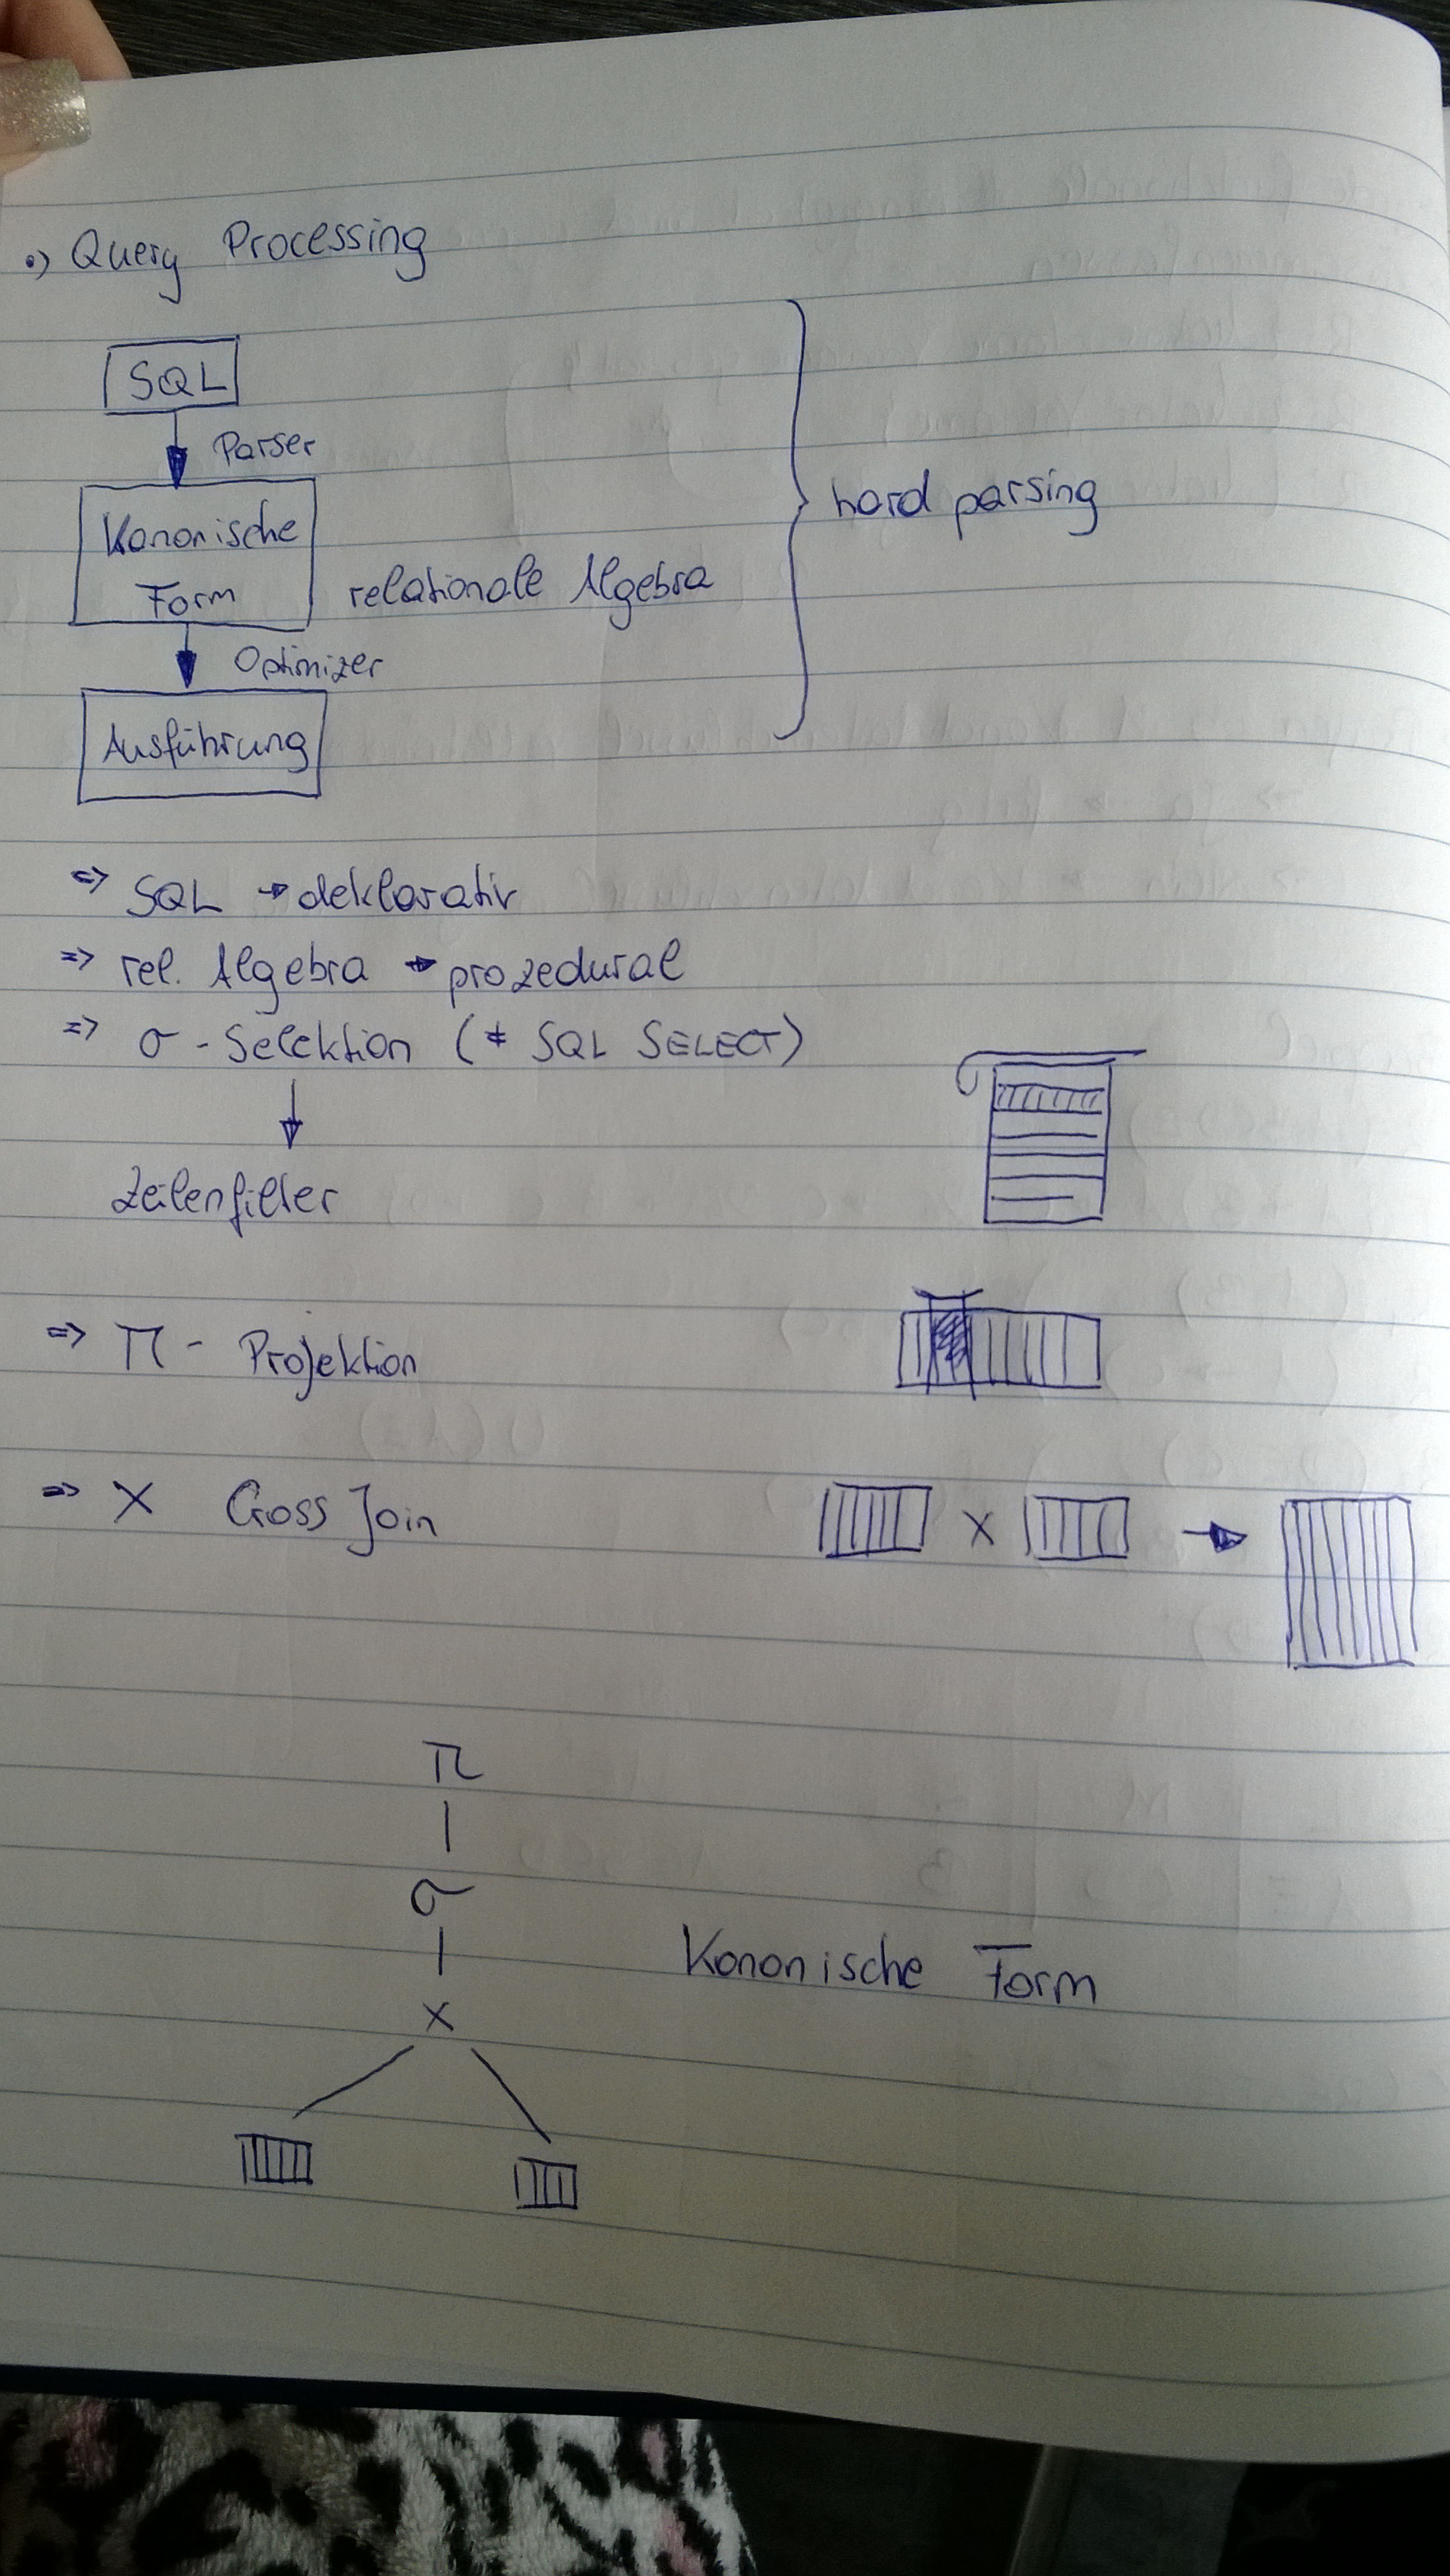 •) Query Processing
SQL
Parser
Kanonische
Form
relationale Algebra
hard parsing
Optimizer
Ausführung
=> SQL → deklarativ
=> rel. Algebra → prozedural
=> σ - Selektion (≠ SQL SELECT)
Zeilenfilter
=> π - Projektion
=> X Cross Join
X →
π
σ
X
Kanonische Form